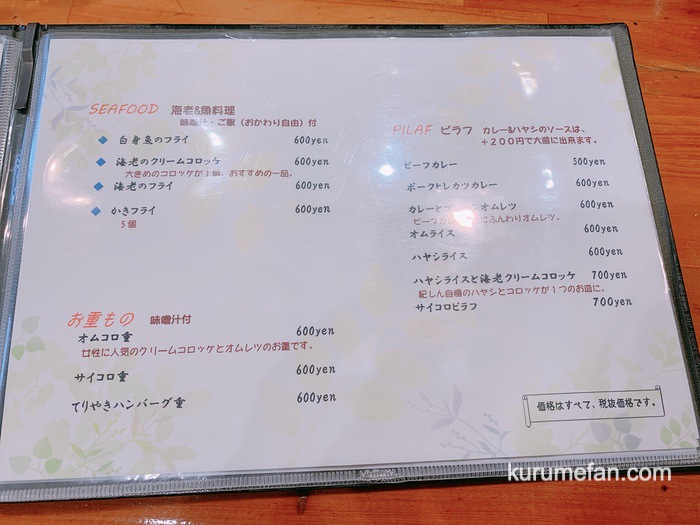 SEAFOOD 海老&魚料理
味噌汁・ご飯（おかわり自由）付
白身魚のフライ 600yen
海老のクリームコロッケ 600yen
大きめのコロッケが1個、おすすめの一品。
海老のフライ 600yen
かきフライ 600yen
5個
お重もの 味噌汁付
オムコロ重 600yen
女性に人気のクリームコロッケとオムレツのお重です。
サイコロ重 600yen
てりやきハンバーグ重 600yen
PILAF ピラフ カレー&ハヤシのソースは、
＋200円で大盛に出来ます。
ビーフカレー 500yen
ポークトレカツカレー 600yen
カレーとプレーンオムレツ 600yen
ビーフカレーにふんわりオムレツ。
オムライス 600yen
ハヤシライス 600yen
ハヤシライスと海老クリームコロッケ 700yen
紀しん自慢のハヤシとコロッケが1つのお皿に。
サイコロピラフ 700yen
価格はすべて、税抜価格です。
kurumefan.com